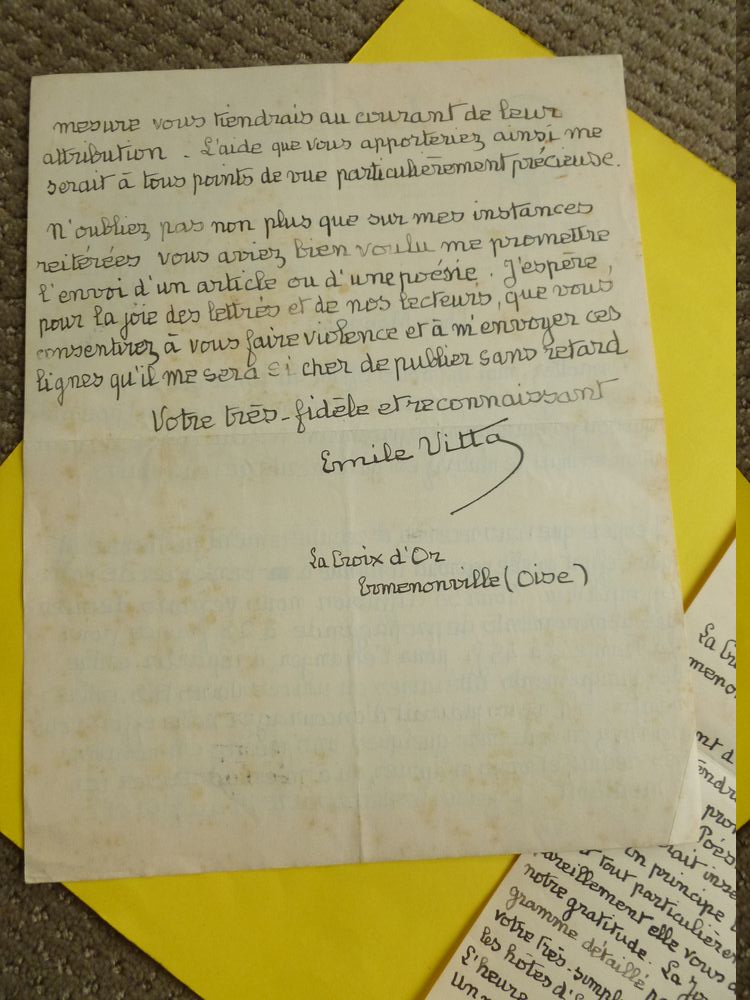 mesure vous tiendrais au courant de leur
attribution. L'aide que vous apporteriez ainsi me
serait à tous points de vue particulièrement précieuse.
N'oubliez pas non plus que sur mes instances
reitérées vous aviez bien voulu me promettre
l'envoi d'un article ou d'une poésie. J'espère,
pour la joie des lettrés et de nos lecteurs, que vous
consentirez à vous faire violence et à m'envoyer ces
lignes qu'il me sera si cher de publier sans retard
Votre très-fidèle et reconnaissant
Emile Vitta
La Croix d'Or
Ermenonville (Oise)
La Cro
menon
nt d
endra
pro
Poés
rait inse
un principe
t tout particulièrem
pareillement elle vous a
notre gratitude. La
gramme détaillé
votre très-simple
les hôtes d'
L'heure
un